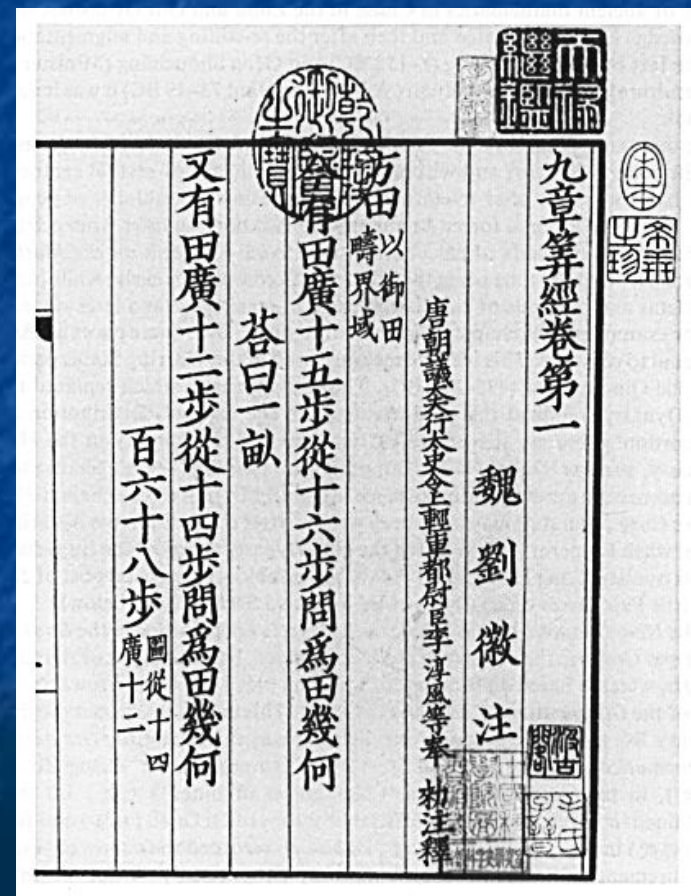 宋本
希世之珍
天祿繼鑑
乾隆御覽之寶
九章筭經卷第一
魏劉徽注
唐朝議大夫行太史令上輕車都尉臣李淳風等奉 勑注釋
汲古閣
方田以御田
疇界域
今有田廣十五步從十六步問爲田幾何
荅曰一畝
又有田廣十二步從十四步問爲田幾何
百六十八步圖從十四
廣十二